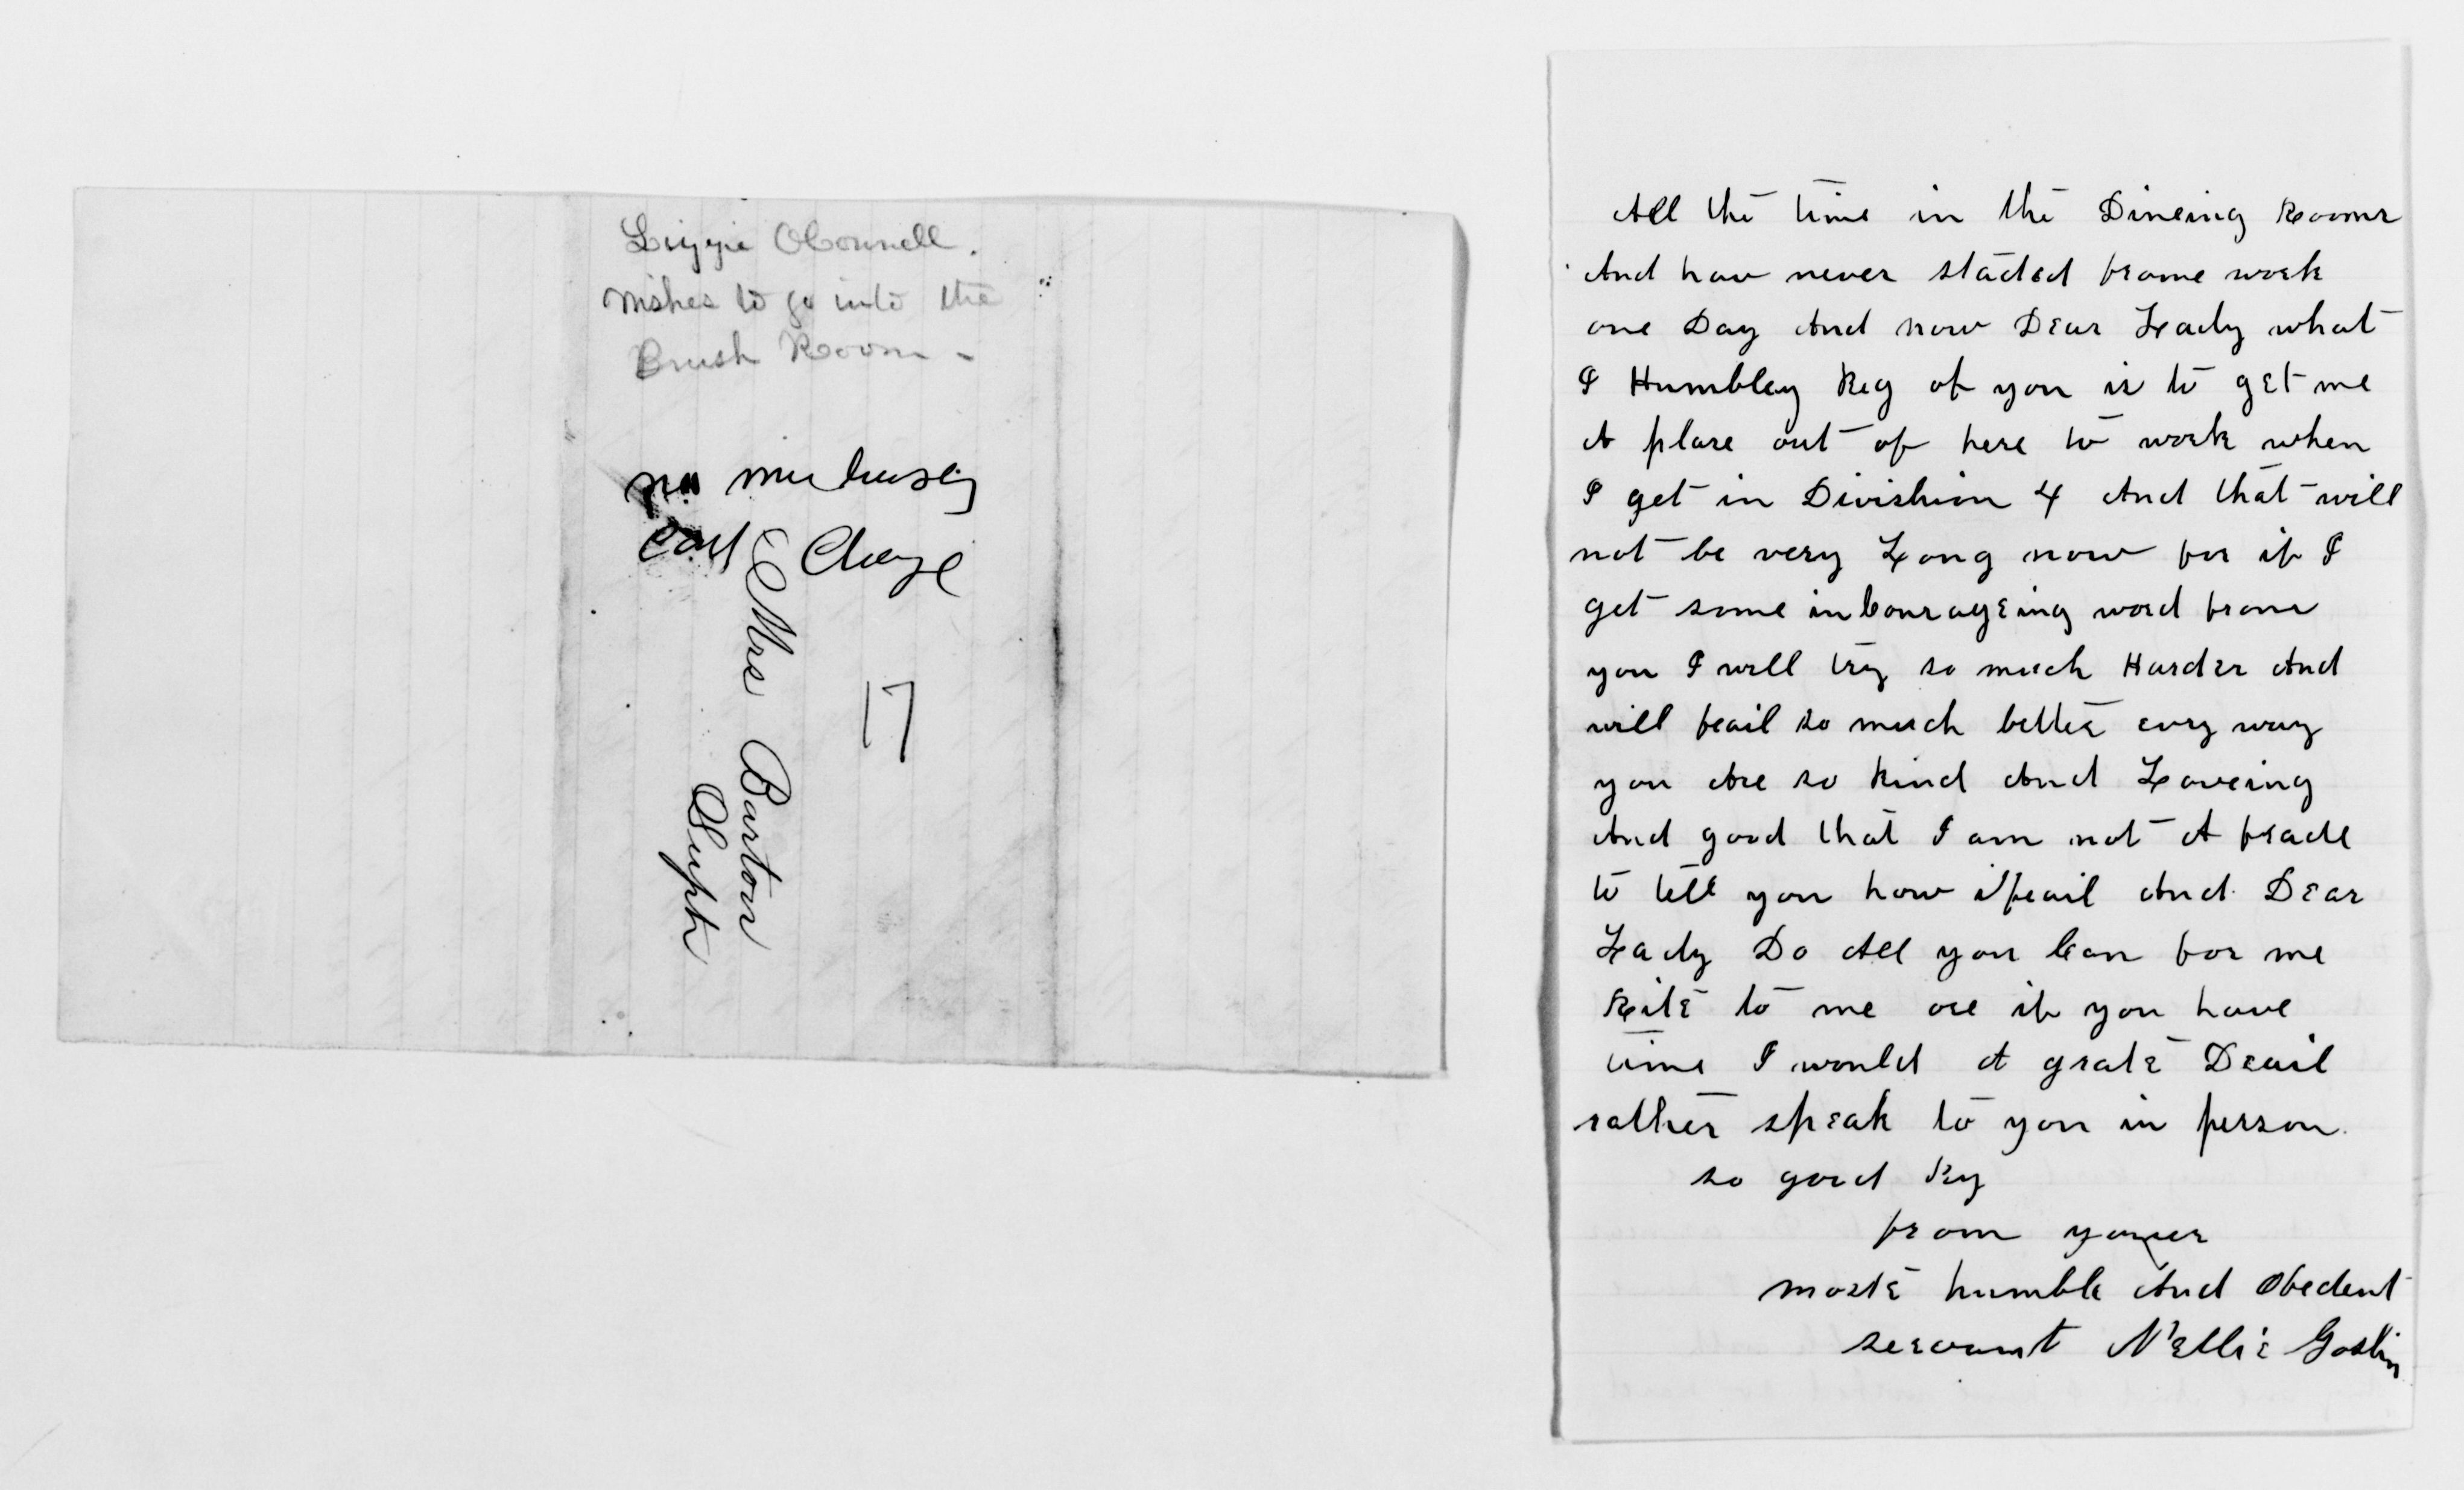 Lizzie OConnell.
Wishes to go into the
Brush Room -
no
cant Change
Mrs Barton
Supt
17
All the time in the Dineing Rooms
And hav never staded frome work
one Day And now Dear Lady what
I Humbley Beg of you is to get me
A plase out of here to work when
I get in Divishion 4 And that will
not be very Long now for if I
get some incourageing word from
you I will try so much Harder And
will feail so much better evry way
you Are so kind And Loveing
And good that I am not A frade
to tell you how i feail And Dear
Lady Do All you Can for me
Rite to me ore if you have
time I would A grate Deail
rather speak to you in person.
so good By
from youer
moste humble And Obedent
servant Nellie Goslin